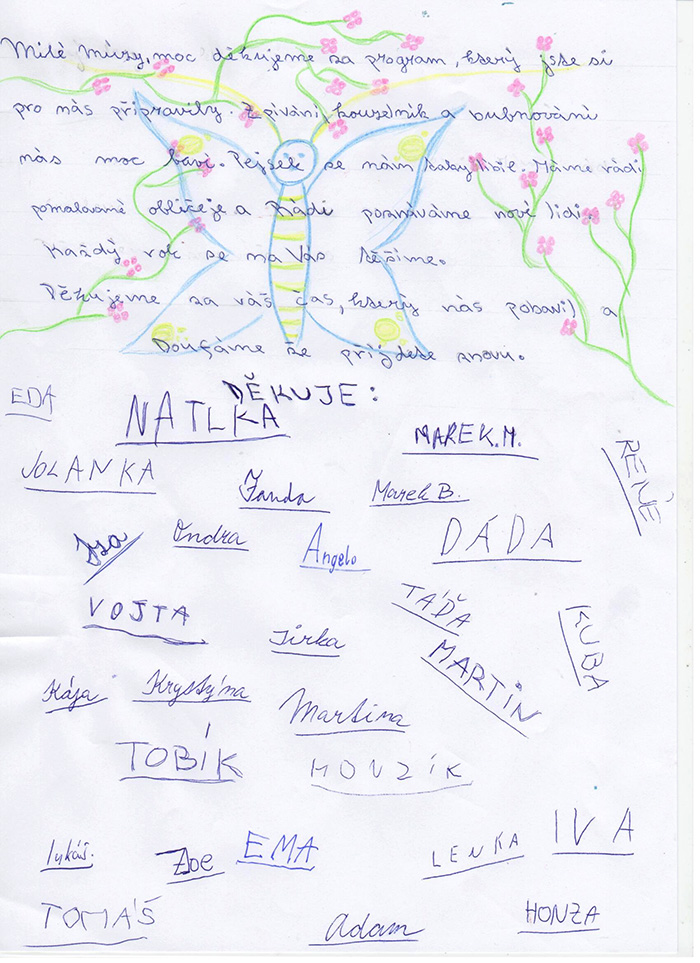 Milé Múzy, moc děkujeme za program, který jste si
pro nás připravily. Zpívání, kouzelník a bubnování
nás moc baví. Pejsek se nám taky líbil. Máme rádi
pomalované obličeje a Rádi poznáváme nové lidi.
Každý rok se na Vás těšíme.
Děkujeme za váš čas, který nás pobavil a
Doufáme že příjdete znovu.
DĚKUJE:
EDA
NATLKA
MAREK.M.
JOLANKA
Žanda
Marek B.
RENÈ
Ondra
Angelo
DÁDA
VOJTA
Jirka
TÁĎA
MARTIN
KUBA
Kája
Krystýna
Martina
TOBÍK
HONZÍK
Lukáš.
Zoe
EMA
LENKA
IVA
TOMÁŠ
Adam
HONZA